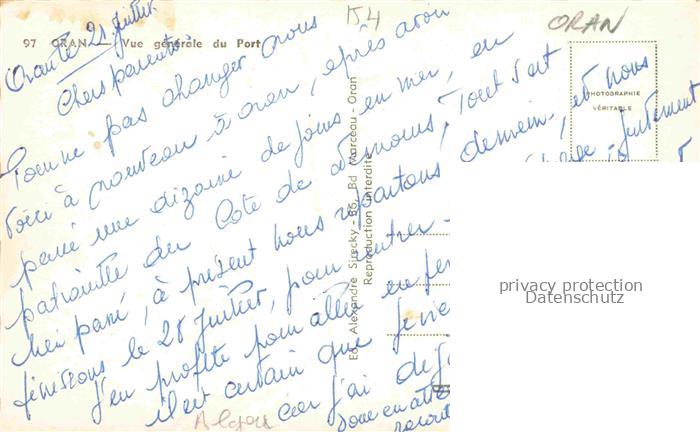 154
ORAN
97 ORAN — Vue générale du Port
Oran le 21 Juillet
Chers parents
Pour ne pas changer nous
voici à nouveau à Oran, après avoir
passé une dizaine de jours en mer, en
patrouille du Côté de Nemours, Tout s'est
bien passé, à présent nous repartons demain, et nous
finissons le 28 Juillet, pour rentrer
justement
J'en profite pour aller en per
il est certain que je
car j'ai de
Donc en att
Alger
PHOTOGRAPHIE
VÉRITABLE
Ed. Alexandre Sirecky - 56, Bd Marceau - Oran
Reproduction interdite
privacy protection
Datenschutz